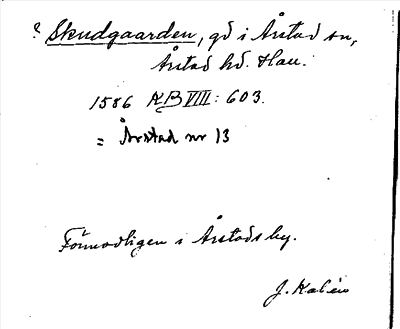 ? Skudgaarden, gd i Årstad sn,
Årstad hd. Hall.
1586 KB VIII: 603.
= Årstad nr 13
Förmodligen i Årstads by.
J. Kalén